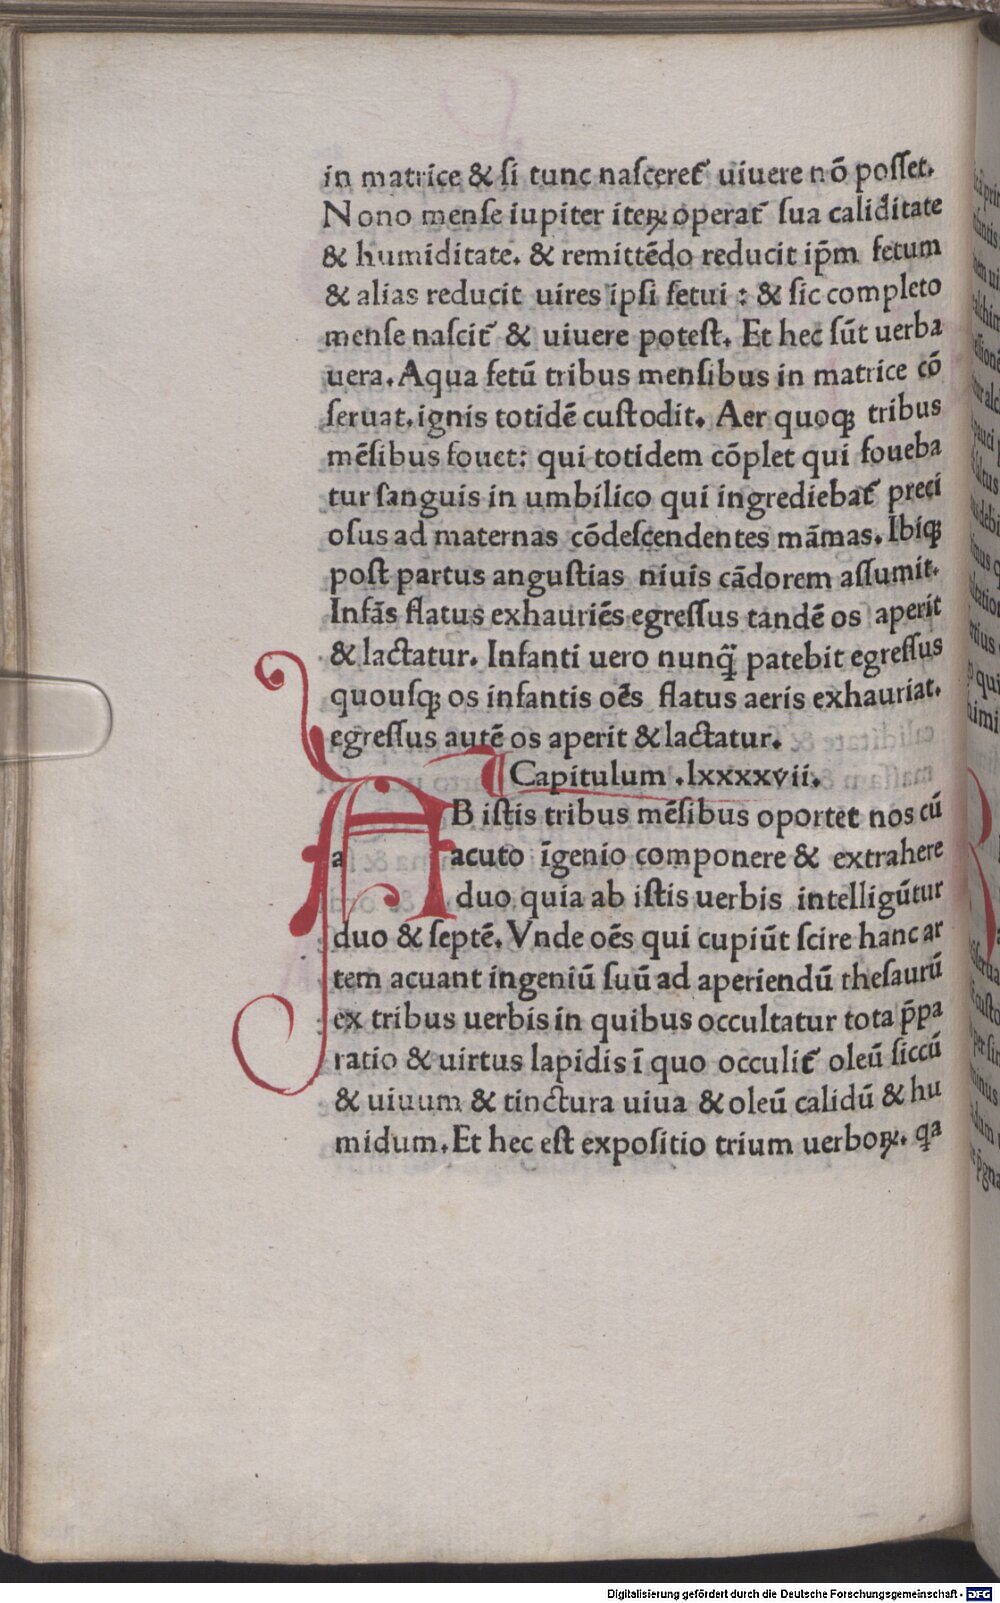 in matrice & si tunc nasceret᷑ uiuere nō posset.
Nono mense iupiter iteꝝ operat᷑ sua caliditate
& humiditate. & remittēdo reducit ip̄m fetum
& alias reducit uires ipsi fetui : & sic completo
mense nascit᷑ & uiuere potest. Et hec sūt uerba
uera. Aqua fetū tribus mensibus in matrice cō
seruat. ignis totidē custodit. Aer quoqꝫ tribus
mēsibus fouet: qui totidem cōplet qui foueba
tur sanguis in umbilico qui ingrediebat᷑ preci
osus ad maternas cōdescendentes māmas. Ibiqꝫ
post partus angustias niuis cādorem assumit.
Infās flatus exhauriēs egressus tandē os aperit
& lactatur. Infanti uero nunq̄ patebit egressus
quousqꝫ os infantis oēs flatus aeris exhauriat.
egressus autē os aperit & lactatur.
¶ Capitulum .lxxxxvii.
AB istis tribus mēsibus oportet nos cū
a acuto īgenio componere & extrahere
duo quia ab istis uerbis intelligūtur
duo & septē. Vnde oēs qui cupiūt scire hanc ar
tem acuant ingeniū suū ad aperiendū thesaurū
ex tribus uerbis in quibus occultatur tota p̄pa
ratio & uirtus lapidis ī quo occulit᷑ oleū siccū
& uiuum & tinctura uiua & oleū calidū & hu
midum. Et hec est expositio trium uerboꝝ. qa
Digitalisierung gefördert durch die Deutsche Forschungsgemeinschaft - DFG